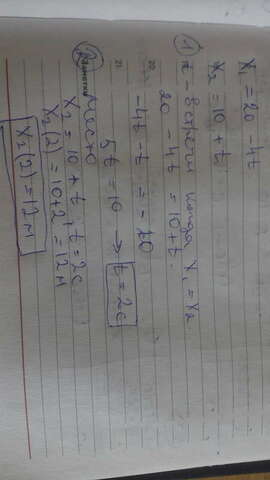 x₁ = 20 - 4t
x₂ = 10 + t
① t - встречи когда x₁ = x₂
20 - 4t = 10 + t
-4t - t = -10
5t = 10 → t = 2c
② место
x₂ = 10 + t, t = 2c
x₂(2) = 10 + 2 = 12м
x₂(2) = 12м
20
21
Заметки